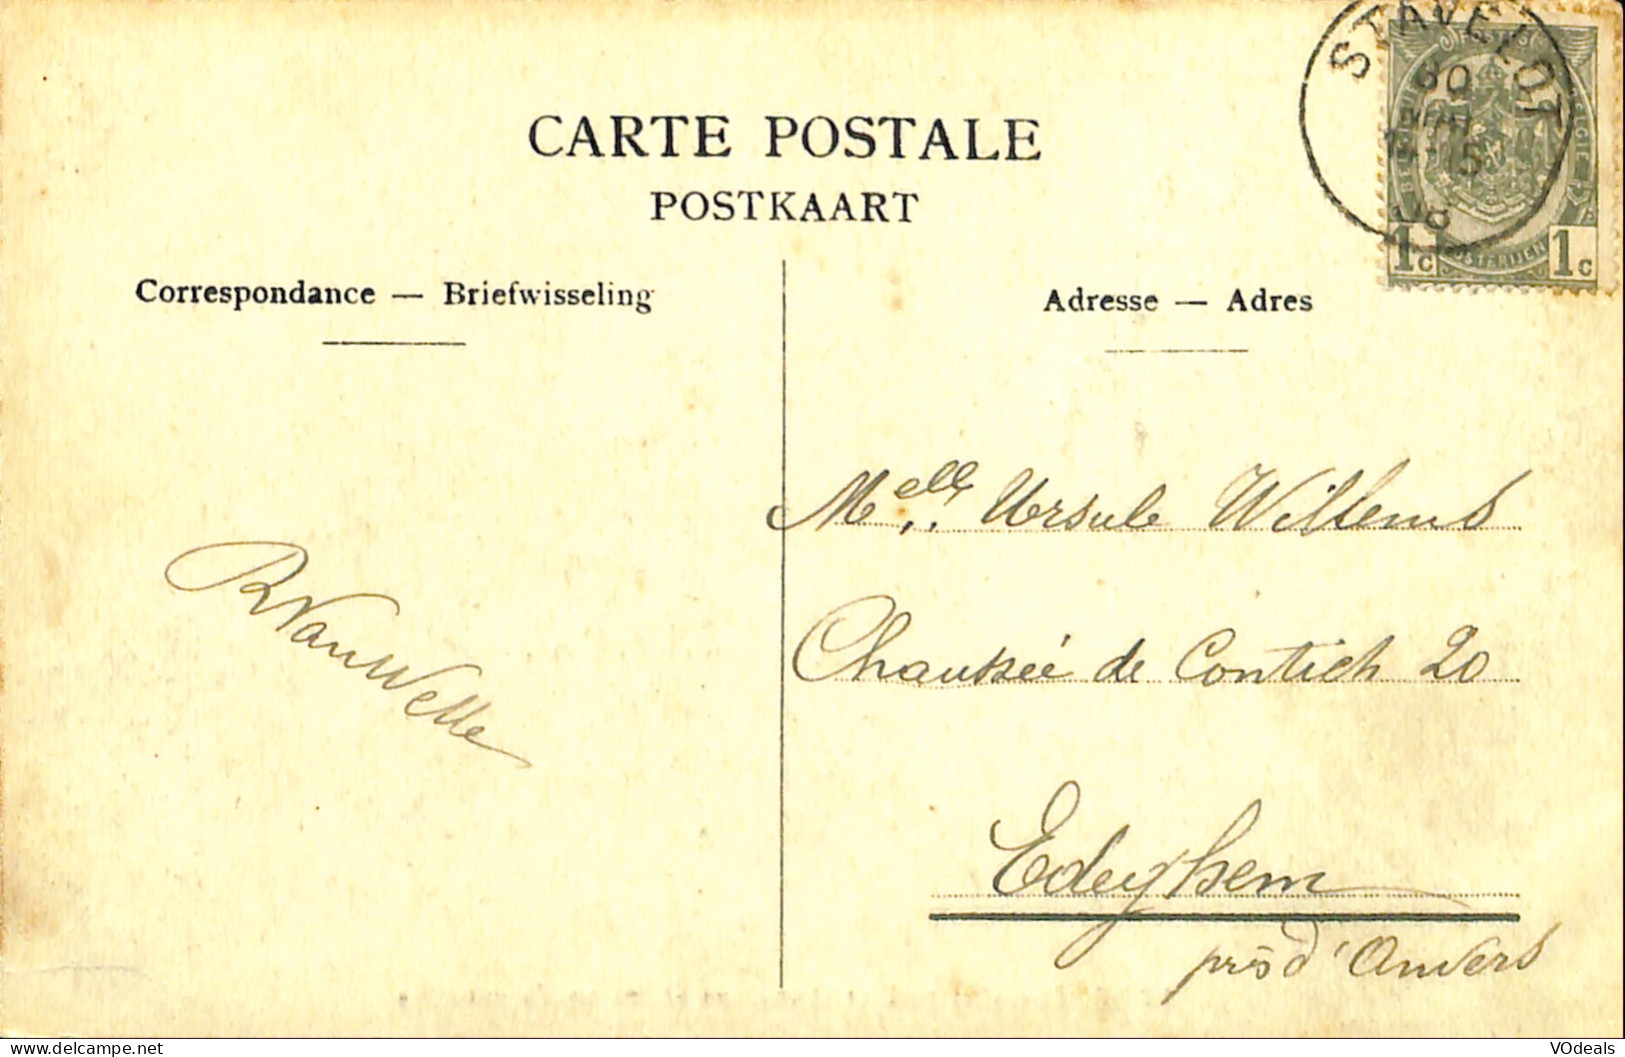 STAVELOT
08
1c 1c
CARTE POSTALE
POSTKAART
Correspondance — Briefwisseling
Adresse — Adres
Melle Ursule Willems
Chaussée de Contich 20
Edeghem
près d'Anvers
R Van Welle
www.delcampe.net
VOdeals